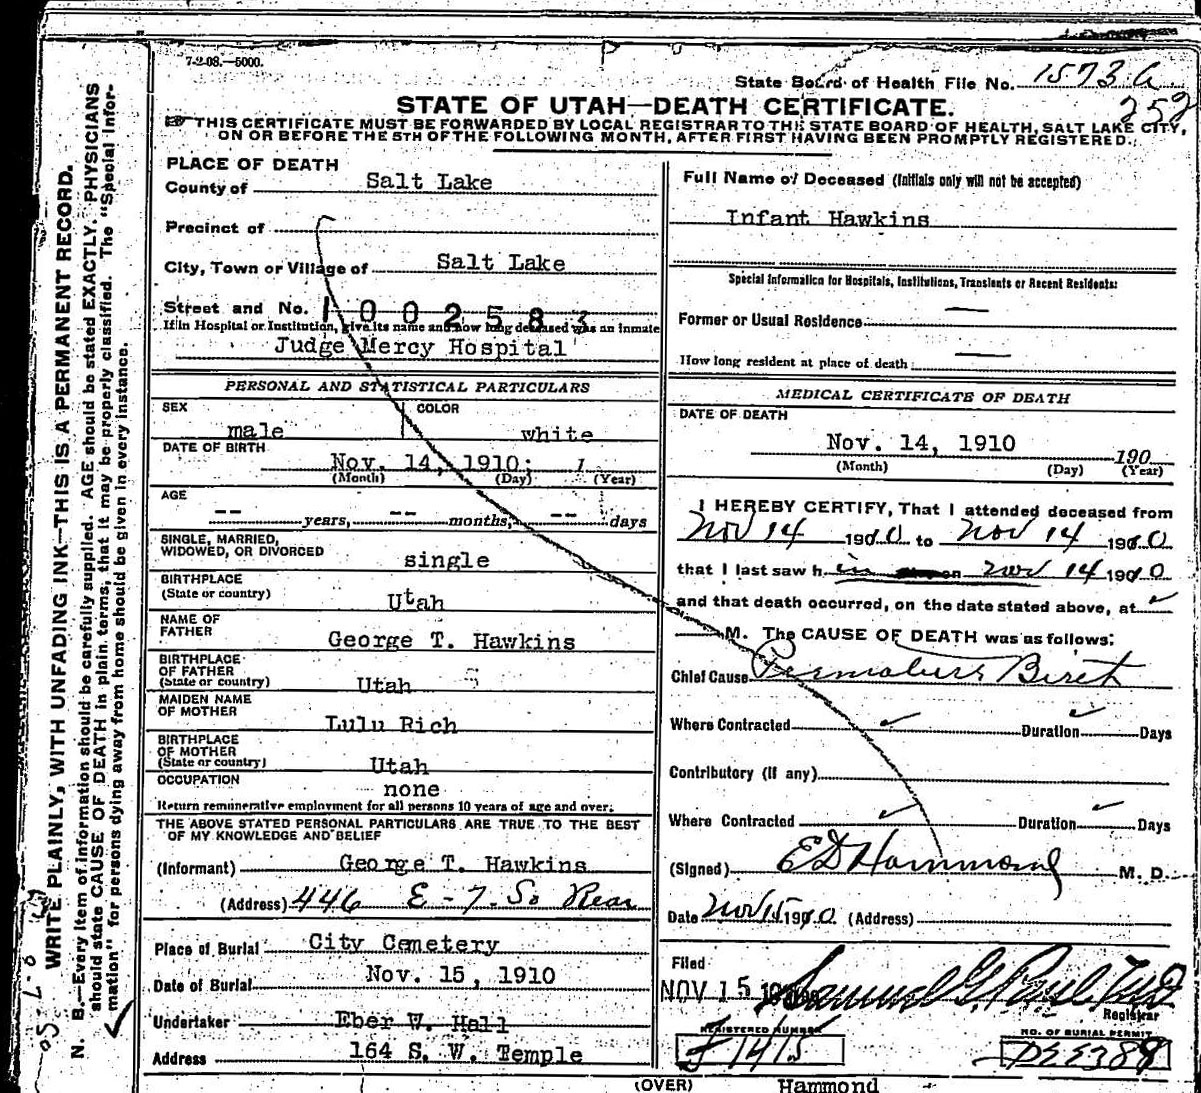 7-2-08.—5000.
State Board of Health File No. 1573 a
252
STATE OF UTAH—DEATH CERTIFICATE.
THIS CERTIFICATE MUST BE FORWARDED BY LOCAL REGISTRAR TO THE STATE BOARD OF HEALTH, SALT LAKE CITY,
ON OR BEFORE THE 5TH OF THE FOLLOWING MONTH, AFTER FIRST HAVING BEEN PROMPTLY REGISTERED.
WRITE PLAINLY, WITH UNFADING INK—THIS IS A PERMANENT RECORD.
N. B.—Every item of information should be carefully supplied. AGE should be stated EXACTLY. PHYSICIANS
should state CAUSE OF DEATH in plain terms, that it may be properly classified. The "Special Infor-
mation" for persons dying away from home should be given in every instance.
PLACE OF DEATH
County of Salt Lake
Precinct of
City, Town or Village of Salt Lake
Street and No. 1002583
If in Hospital or Institution, give its name and how long deceased was an inmate
Judge Mercy Hospital
PERSONAL AND STATISTICAL PARTICULARS
SEX COLOR
male white
DATE OF BIRTH
Nov. 14, 1910; 1
(Month) (Day) (Year)
AGE
-- years, -- months, -- days
SINGLE, MARRIED,
WIDOWED, OR DIVORCED single
BIRTHPLACE
(State or country) Utah
NAME OF
FATHER George T. Hawkins
BIRTHPLACE
OF FATHER
(State or country) Utah
MAIDEN NAME
OF MOTHER Lulu Rich
BIRTHPLACE
OF MOTHER
(State or country) Utah
OCCUPATION none
Return remunerative employment for all persons 10 years of age and over.
THE ABOVE STATED PERSONAL PARTICULARS ARE TRUE TO THE BEST
OF MY KNOWLEDGE AND BELIEF
(Informant) George T. Hawkins
(Address) 446 E - 7. So Rear
Place of Burial City Cemetery
Date of Burial Nov. 15, 1910
Undertaker Eber W. Hall
Address 164 S. W. Temple
Full Name of Deceased (Initials only will not be accepted)
Infant Hawkins
Special Information for Hospitals, Institutions, Transients or Recent Residents:
Former or Usual Residence —
How long resident at place of death: —
MEDICAL CERTIFICATE OF DEATH
DATE OF DEATH
Nov. 14, 1910 190
(Month) (Day) (Year)
I HEREBY CERTIFY, That I attended deceased from
Nov 14 1910 to Nov 14 1910
that I last saw h im on Nov 14 1910
and that death occurred, on the date stated above, at
M. The CAUSE OF DEATH was as follows:
Chief Cause Premature Birth
Where Contracted Duration Days
Contributory (if any)
Where Contracted Duration Days
(Signed) E D Hammond M. D.
Date Nov 15 1910 (Address)
Filed
NOV 15 Samuel G. Paul MD
Registrar
REGISTERED NUMBER
1415
NO. OF BURIAL PERMIT
(OVER) Hammond